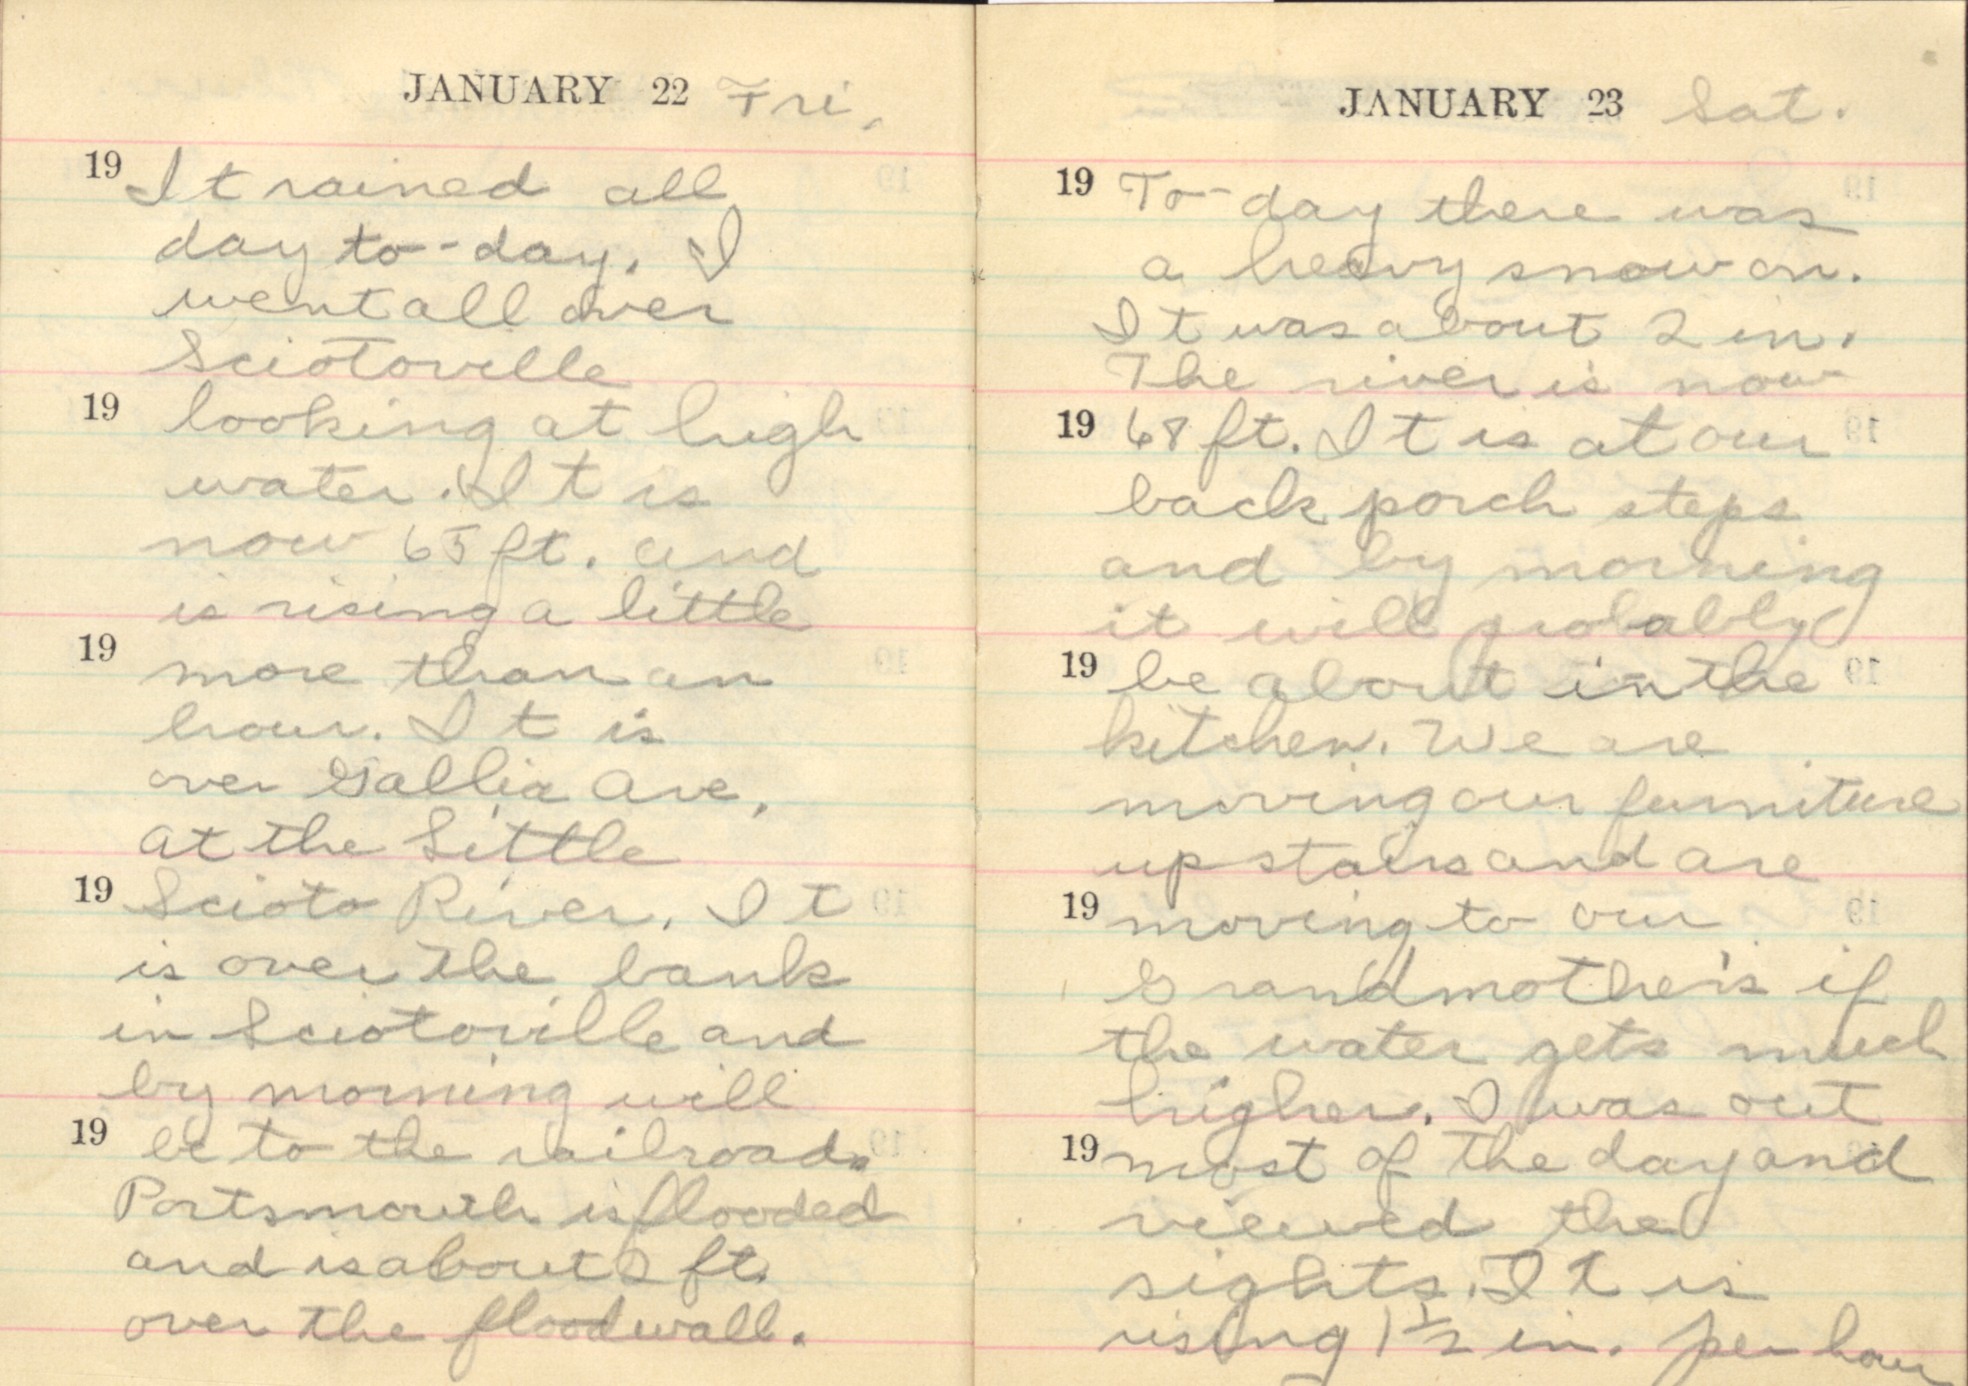 JANUARY 22 Fri.
19 It rained all
day to-day. I
went all over
Sciotoville
19 looking at high
water. It is
now 65 ft. and
is rising a little
19 more than an
hour. It is
over Gallia Ave,
at the Little
19 Scioto River. It
is over the bank
in Sciotoville and
by morning will
19 be to the railroad.
Portsmouth is flooded
and is about 2 ft.
over the floodwall.
JANUARY 23 Sat.
19 To-day there was
a heavy snow on.
It was about 2 in.
The river is now
19 68 ft. It is at our
back porch steps
and by morning
it will probably
19 be about in the
kitchen. We are
moving our furniture
up stairs and are
19 moving to our
Grandmother's if
the water gets much
higher. I was out
19 most of the day and
viewed the
sights. It is
rising 1½ in. per hour